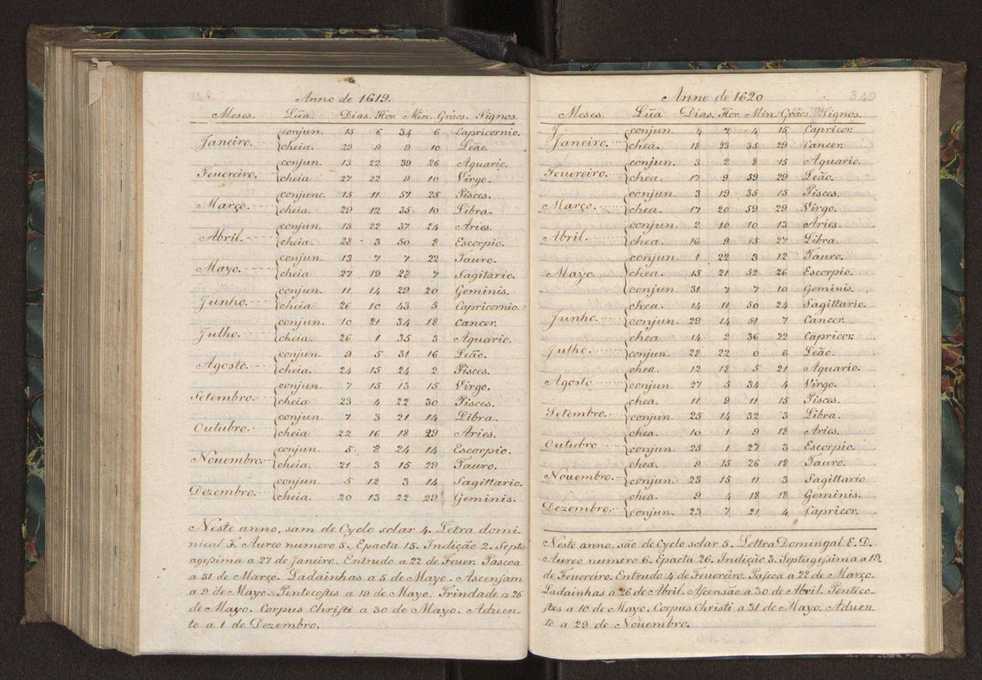 Anno de 1619.
Meses. Lũa. Dias. Hor. Min. Gráos. Signos.
Janeiro. conjun. 15 6 34 6 Capricornio.
cheia. 29 9 9 10 Leão.
Feuereiro. conjun. 13 22 39 26 Aquario.
cheia 27 22 9 10 Virgo.
Março. conjunc. 15 11 57 25 Pisces.
cheia. 29 12 35 10 Libra.
Abril. conjun. 13 22 37 24 Aries.
cheia. 28 3 50 2 Escorpio.
Mayo. conjun. 13 7 7 22 Tauro.
cheia 27 19 22 7 Sagitario.
Junho. conjun. 11 14 29 20 Geminis.
cheia 26 10 43 5 Capricornio.
Julho. conjun. 10 21 34 18 Cancer.
cheia. 26 1 35 3 Aquario.
Agosto. conjun. 9 5 31 16 Leão.
cheia. 24 15 24 2 Pisces.
Setembro. conjun. 7 15 13 15 Virgo.
cheia 23 4 22 30 Pisces.
Outubro. conjun. 7 3 21 14 Libra.
cheia 22 16 18 29 Aries.
Nouembro. conjun. 5 2 24 14 Escorpio.
cheia. 21 3 15 29 Tauro.
Dezembro. conjun. 5 12 3 14 Sagittario.
cheia. 20 13 22 29 Geminis.
Neste anno, sam de Cyclo solar 4. Letra domi-
nical F. Aureo numero 5. Epacta 15. Indição 2. Septo
agesima a 27 de janeiro. Entrudo a 22 de Feuer. Pascoa
a 31 de Março. Ladainhas a 5 de Mayo. Ascenjam
a 9 de Mayo. Pentecostes a 19 de Mayo. Trindade a 26
de Mayo. Corpus Christi a 30 de Mayo. Aduen-
to a 1 de Dezembro.
349
Anno de 1620
Meses. Lũa Dias. Hor. Min. Gráos. Signos.
Janeiro. conjun. 4 7 4 15 Capricor.
chea. 18 23 35 29 Cancer.
Feuereiro. conjun. 3 2 8 15 Aquario.
chea. 17 9 59 29 Leão.
Março. conjun. 3 19 35 15 Pisces.
chea. 17 20 59 29 Virgo.
Abril. conjun. 2 10 10 13 Aries.
chea. 16 9 15 27 Libra.
Mayo. conjun. 1 22 3 12 Tauro.
chera. 15 21 52 26 Escorpio.
conjun. 31 7 7 10 Geminis.
Junho. chea. 14 11 50 24 Sagittario.
conjun. 29 14 51 7 Cancer.
Julho. chea. 14 2 36 22 Capricor.
conjun. 28 22 0 6 Leão.
Agosto chea. 12 18 5 21 Aquario.
conjun. 27 5 34 4 Virgo.
Setembro. chea. 11 9 11 15 Pisces.
conjun. 25 14 32 3 Libra.
Outubro chea. 10 1 9 18 Aries.
conjun. 25 1 27 3 Escorpio.
Nouembro. chea. 9 15 26 18 Tauro.
conjun. 23 15 11 3 Sagittario
Dezembro. chea 9 4 18 18 Geminis.
conjun. 23 7 21 4 Capricor.
Neste anno, são de Cyclo solar 5. Lettra Domingal E. D.
Aureo numero 6. Epacta 26. Indição 3. Septuagesima a 19
de Feuereiro. Entrudo 4 de Feuereiro. Pascoa a 22 de Março.
Ladainhas a 26 de Abril. Ascensão a 30 de Abril. Penteco-
stes a 10 de Mayo. Corpus Christi a 31 de Mayo. Aduen-
to a 29 de Nouembro.